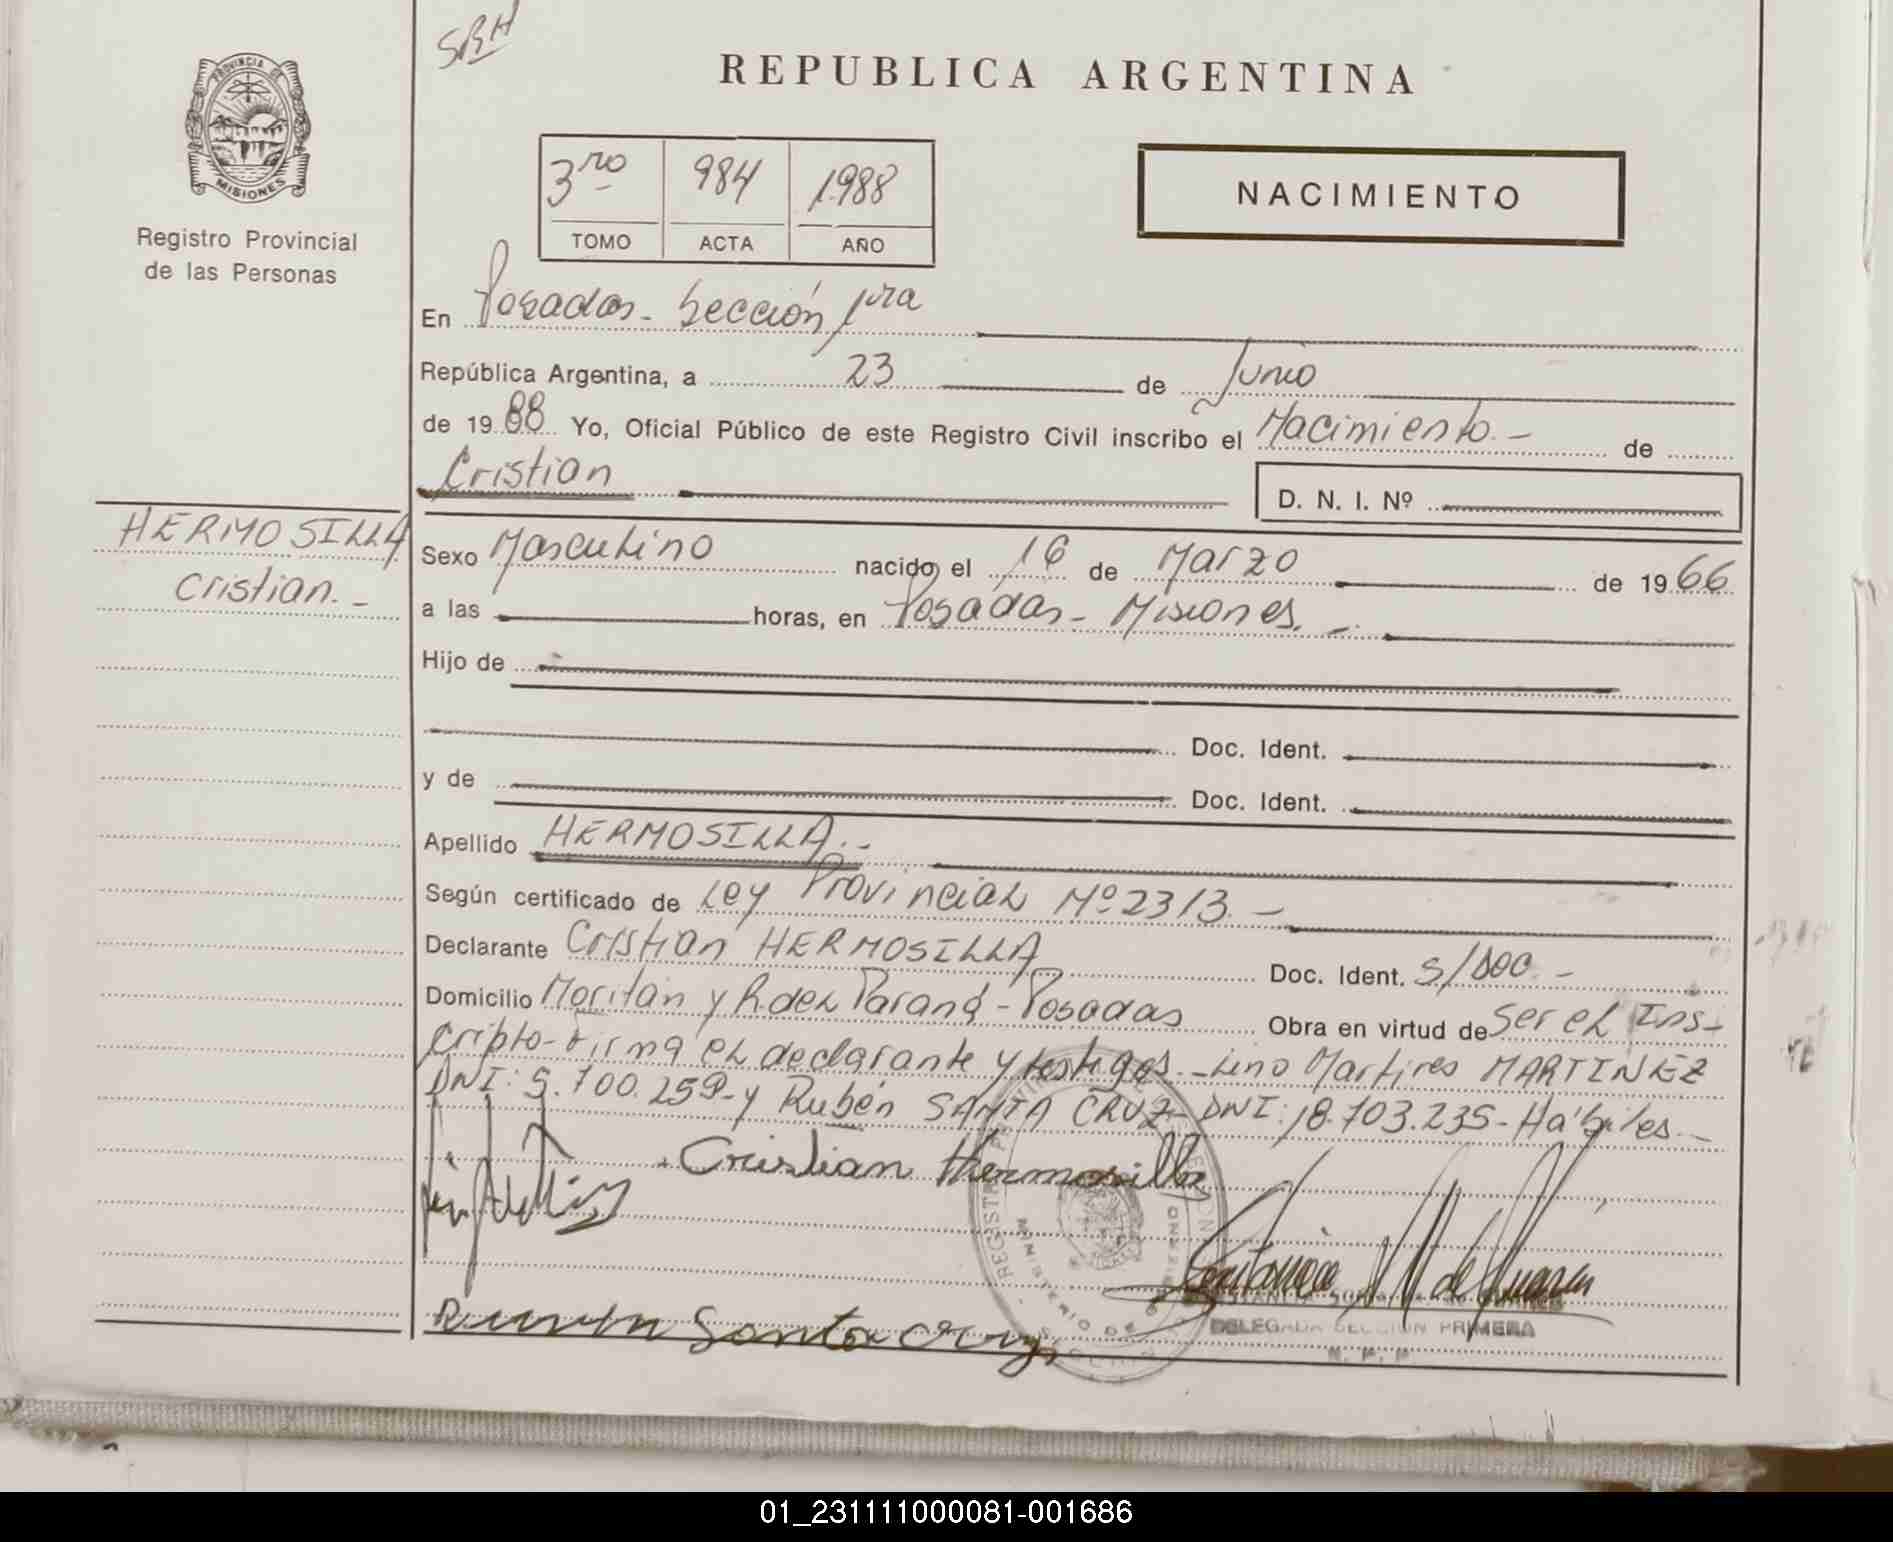 SBH
PROVINCIA DE
MISIONES
Registro Provincial
de las Personas
REPUBLICA ARGENTINA
3ro 984 1988
TOMO ACTA AÑO
NACIMIENTO
En Posadas - Sección 1ra
República Argentina, a 23 de Junio
de 1988 Yo, Oficial Público de este Registro Civil inscribo el Nacimiento.- de
Cristian D. N. I. Nº
HERMOSILLA
Cristian.-
Sexo Masculino nacido el 16 de Marzo de 1966
a las horas, en Posadas - Misiones.-
Hijo de
Doc. Ident.
y de Doc. Ident.
Apellido HERMOSILLA.-
Según certificado de Ley Provincial Nº 2313.-
Declarante Cristian HERMOSILLA Doc. Ident. S/Doc.-
Domicilio Moritán y R. del Paraná - Posadas Obra en virtud de Ser el Ins-
cripto - Firma el declarante y testigos.- Lino Martires MARTINEZ
DNI: 5.700.259 - y Rubén SANTA CRUZ - DNI: 18.703.235 - Hábiles.-
Cristian Hermosilla
Santa Cruz
DELEGADA SECCION PRIMERA
01_231111000081-001686